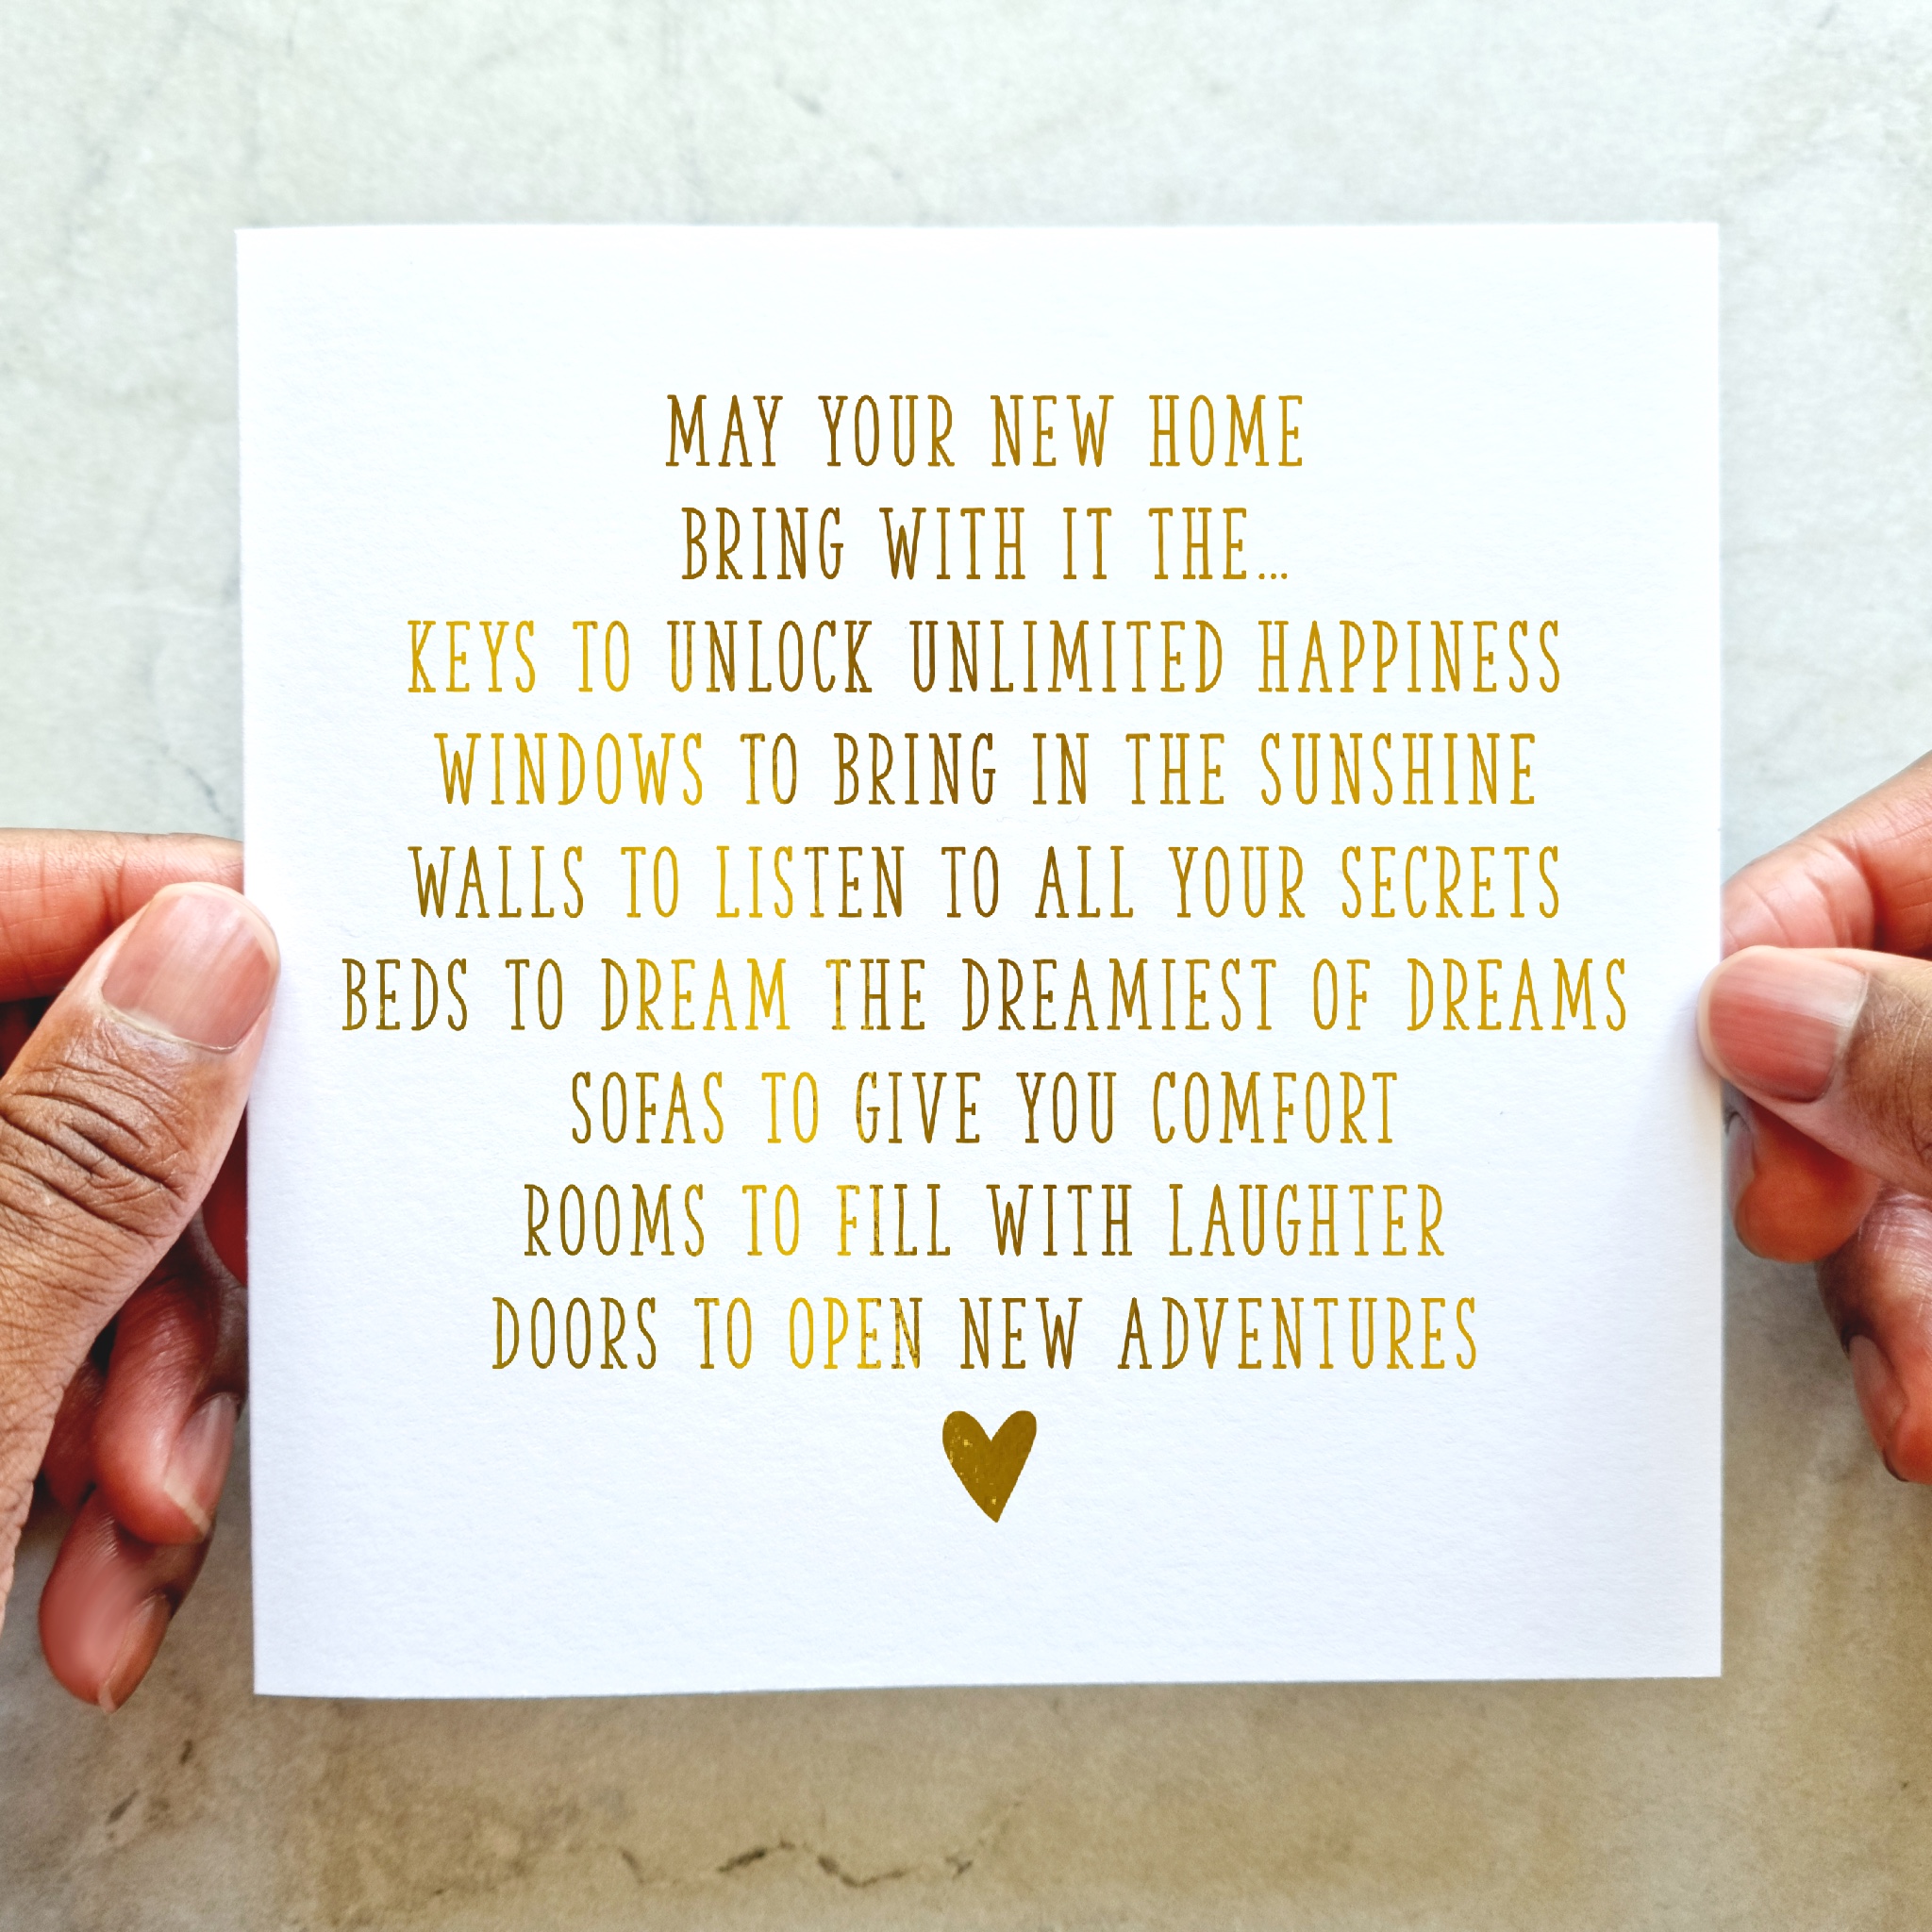 MAY YOUR NEW HOME
BRING WITH IT THE...
KEYS TO UNLOCK UNLIMITED HAPPINESS
WINDOWS TO BRING IN THE SUNSHINE
WALLS TO LISTEN TO ALL YOUR SECRETS
BEDS TO DREAM THE DREAMIEST OF DREAMS
SOFAS TO GIVE YOU COMFORT
ROOMS TO FILL WITH LAUGHTER
DOORS TO OPEN NEW ADVENTURES